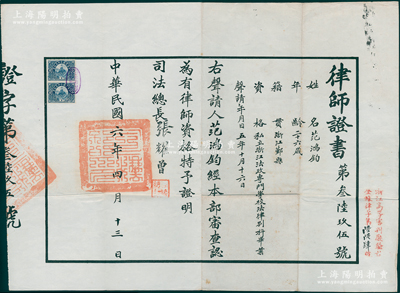 上海陽明拍賣
律師證書 第叁陸玖伍號
姓名 范鴻鈞
年齡 二十六歲
籍貫 浙江鄞縣
資格 私立浙江法政專門學校法律別科畢業
聲請年月日 五年十月十六日
右聲請人范鴻鈞經本部審查認
為有律師資格特予證明
司法總長張耀曾
中華民國六年四月十三日
證字第叁陸玖伍號
上海陽明拍賣